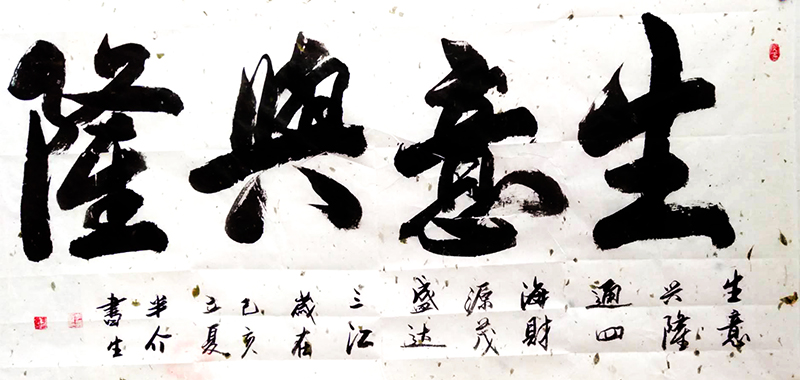 生意興隆
生意
兴隆
通四
海財
源茂
盛达
三江
歲在
己亥
立夏
半介
書生